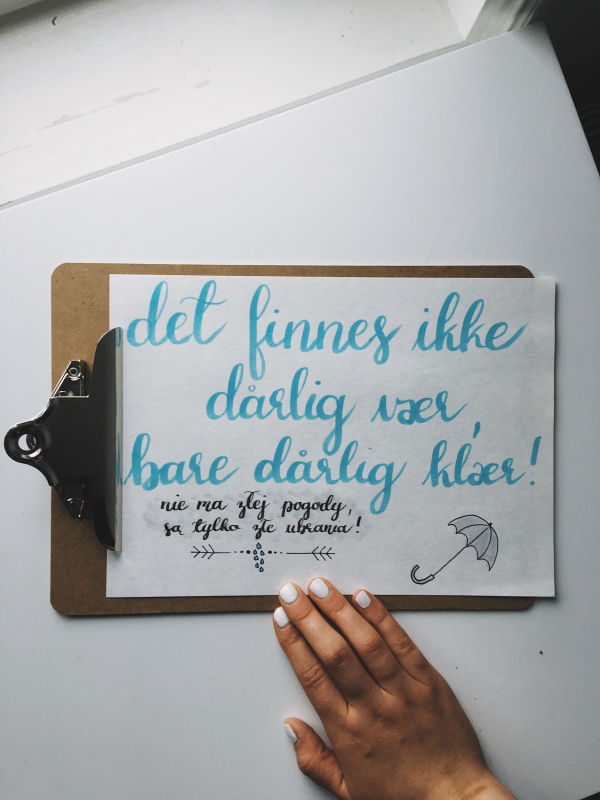 det finnes ikke
dårlig vær,
bare dårlig klær!
nie ma złej pogody,
są tylko złe ubrania!